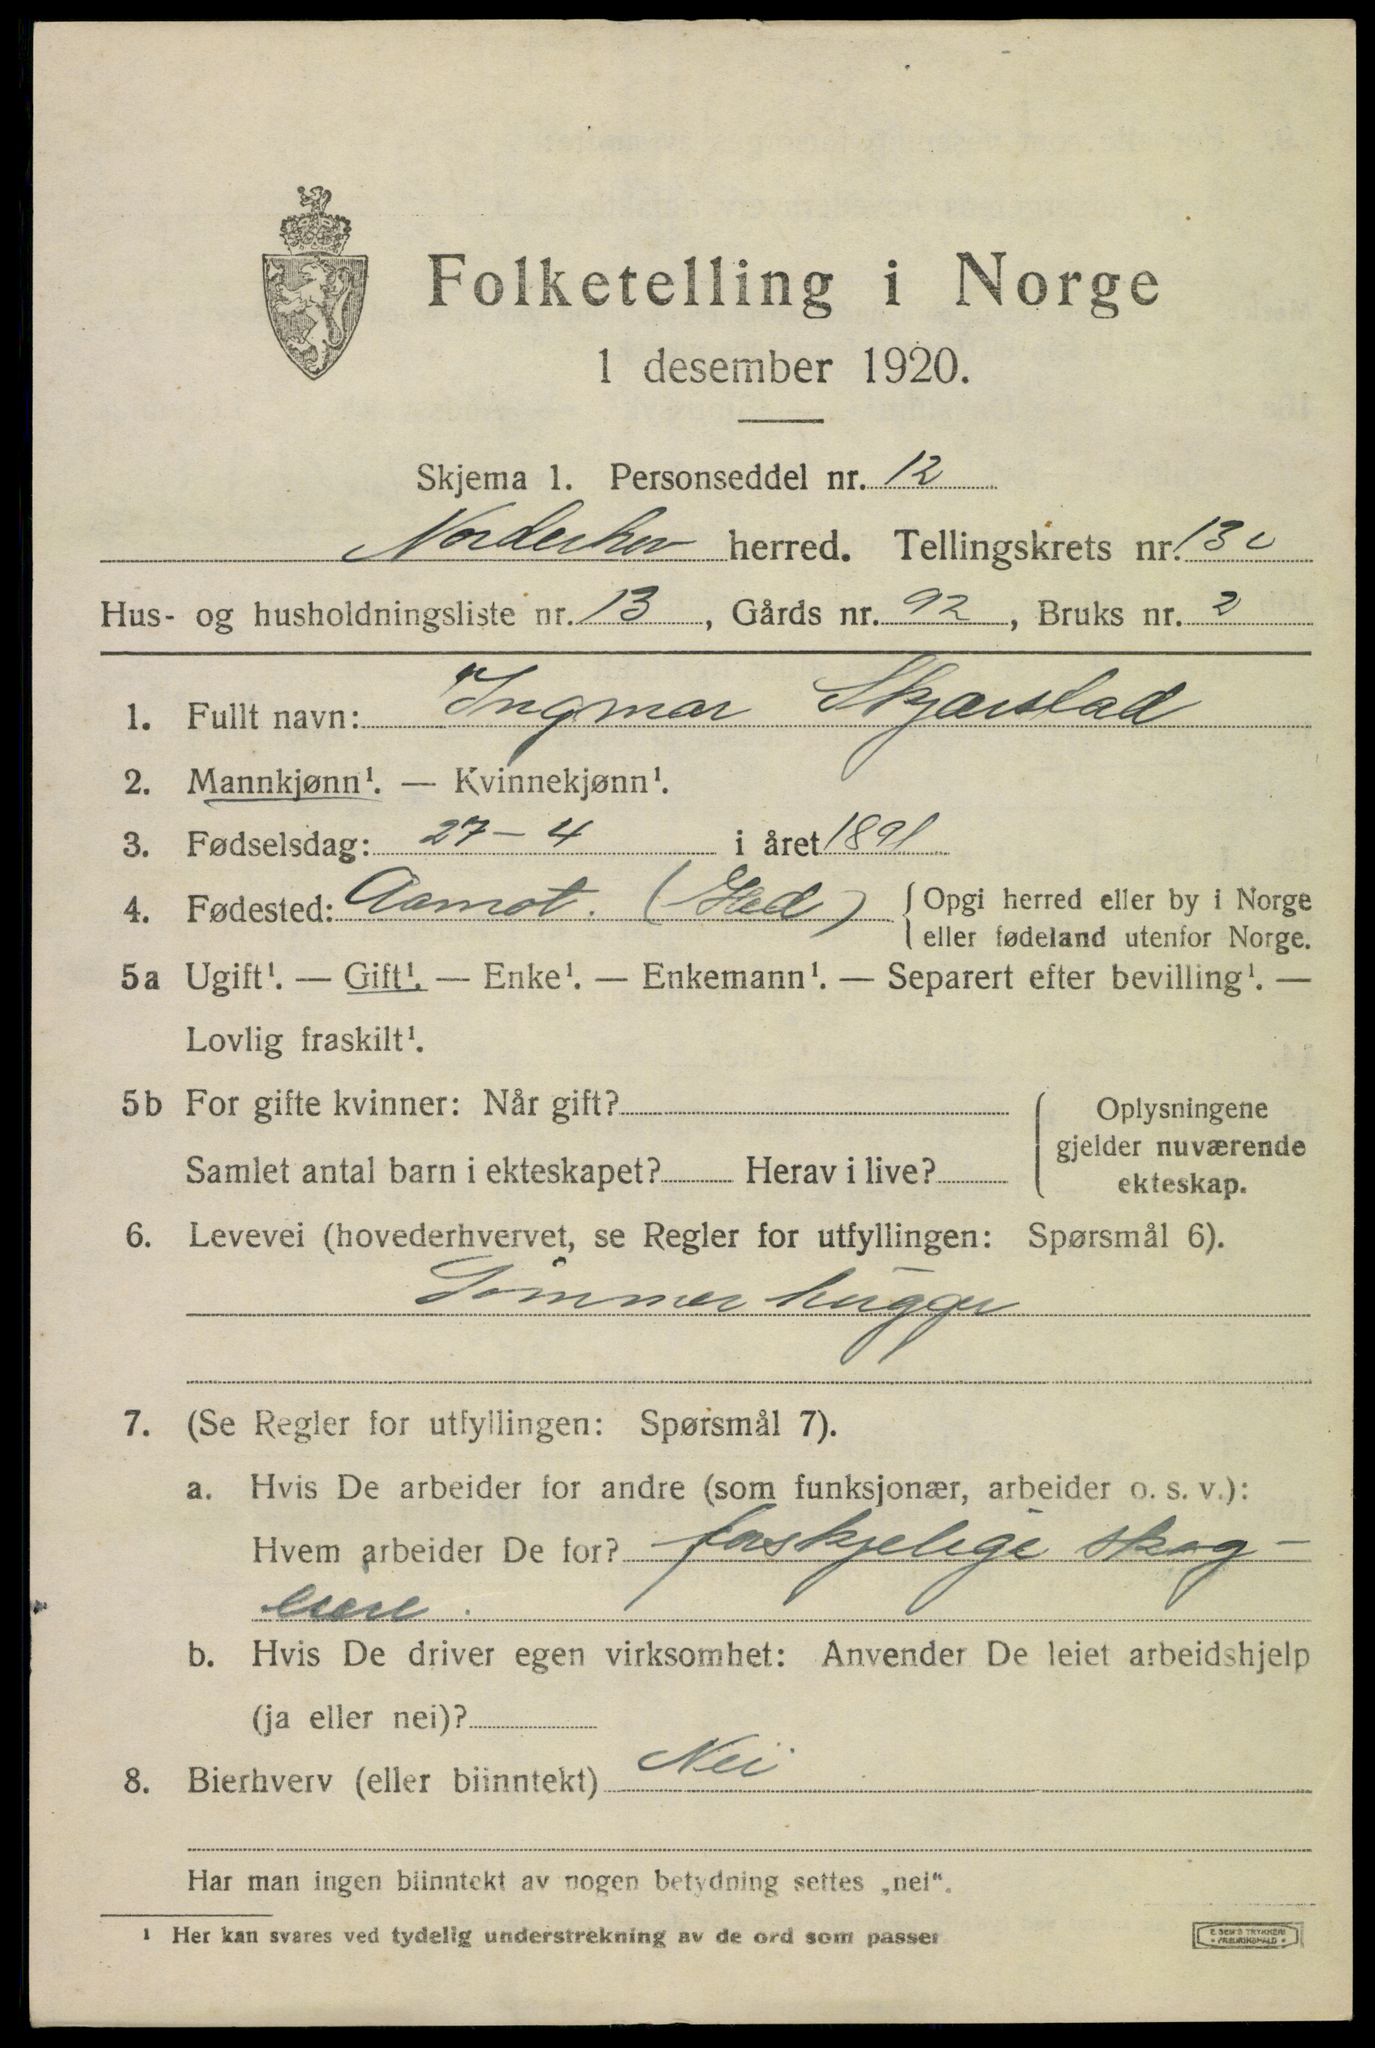 Folketelling i Norge
1 desember 1920.
Skjema 1. Personseddel nr. 12
Norderhov herred. Tellingskrets nr. 13 c
Hus- og husholdningsliste nr. 13, Gårds nr. 92, Bruks nr. 2
1. Fullt navn: Ingmar Skjærstad
2. Mannkjønn¹. — Kvinnekjønn¹.
3. Fødselsdag: 27-4 i året 1891
4. Fødested: Aamot. (Hed) Opgi herred eller by i Norge
eller fødeland utenfor Norge.
5a Ugift¹. — Gift¹. — Enke¹. — Enkemann¹. — Separert efter bevilling¹. —
Lovlig fraskilt¹.
5b For gifte kvinner: Når gift?
Samlet antal barn i ekteskapet? Herav i live?
Oplysningene
gjelder nuværende
ekteskap.
6. Levevei (hovederhvervet, se Regler for utfyllingen: Spørsmål 6).
Tømmerhugger
7. (Se Regler for utfyllingen: Spørsmål 7).
a. Hvis De arbeider for andre (som funksjonær, arbeider o. s. v.):
Hvem arbeider De for? forskjelige skog-
eiere.
b. Hvis De driver egen virksomhet: Anvender De leiet arbeidshjelp
(ja eller nei)?
8. Bierhverv (eller biinntekt) Nei
Har man ingen biinntekt av nogen betydning settes „nei“.
¹ Her kan svares ved tydelig understrekning av de ord som passer
E. SEM'S TRYKKERI
FREDRIKSHALD